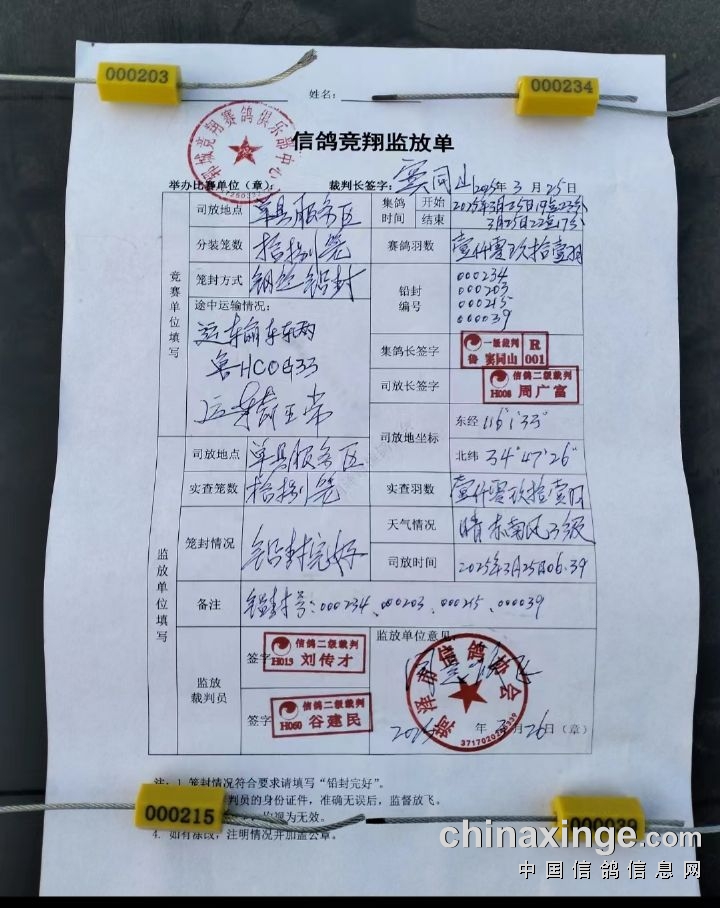 000203
000234
姓名：
郓城竞翔赛鸽俱乐部中心
信鸽竞翔监放单
举办比赛单位（章）：
裁判长签字：窦同山 2025年 3 月 25日
竞赛单位填写
司放地点 单县服务区
集鸽时间 开始 2025年3月25日19点23分
结束 3月25日22点17分
分装笼数 拾捌笼
赛鸽羽数 壹仟零玖拾壹羽
笼封方式 钢丝铅封
铅封编号 000234
000203
000215
000039
途中运输情况：
运输车车辆
集鸽长签字 一级裁判 R
鲁 窦同山 001
司放长签字 信鸽二级裁判
H008 周广富
司放地坐标 东经 116°1'33"
北纬 34°47'26"
监放单位填写
司放地点 单县服务区
实查笼数 拾捌笼
实查羽数 壹仟零玖拾壹羽
笼封情况 铅封完好
天气情况 晴 东南风3级
司放时间 2025年3月25日06:39
备注 铅封号：000234、000203、000215、000039
监放裁判员
签字 信鸽二级裁判
H013 刘传才
签字 信鸽二级裁判
H060 谷建民
监放单位意见：
菏泽市信鸽协会
2025 年 3 月 26日（章）
注：1. 笼封情况符合要求请填写“铅封完好”。
判员的身份证件，准确无误后，监督放飞。
视为无效。
4. 如有涂改，注明情况并加盖公章。
000215
000039
chinaxinge.com
中国信鸽信息网